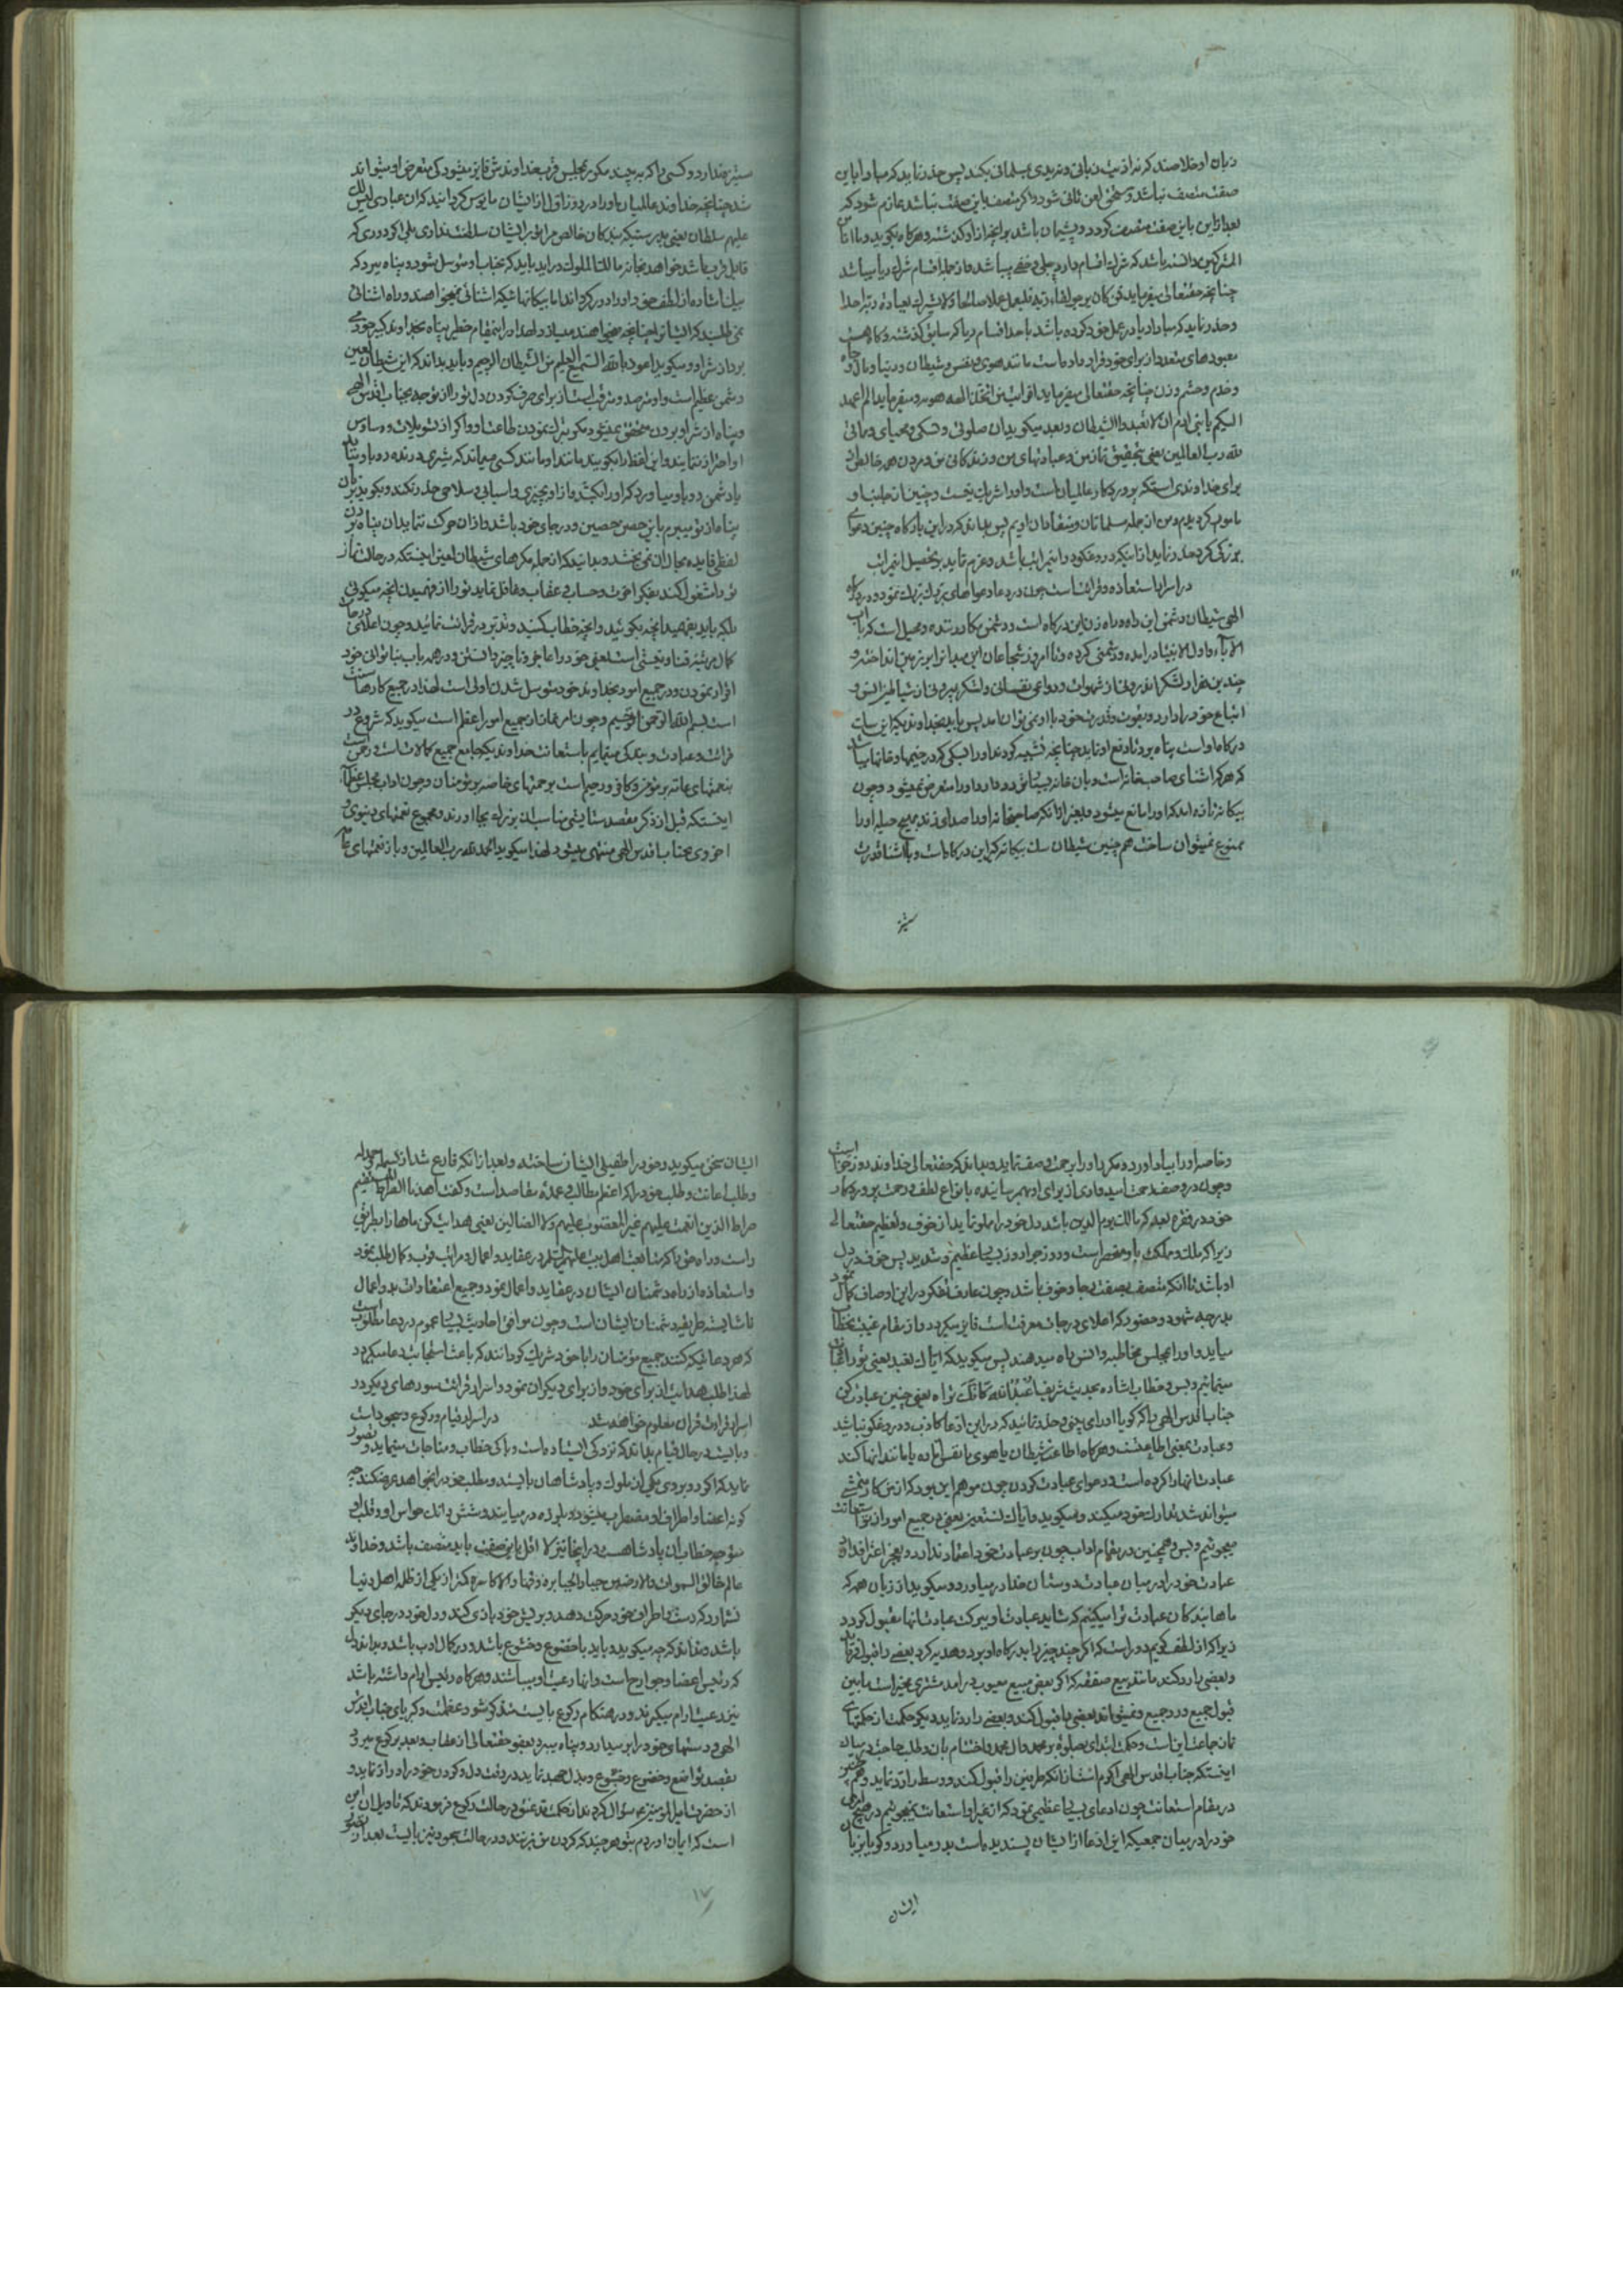 زبان او خلاصند که نه از نیت زبانی و نه یدی مسلمانی بکند پس حذر نماید که مبادا باین
صفت متصف نباشد و مستحق لعن ثانی شود و اگر متصف باین صفت نباشد عازم شود که
بعد از این باین صفت متصف گردد و پشیمان باشد بر آنچه از او گذشته و هرگاه بگوید و ما انا من
المشرکین دانسته باشد که شرک اقسام دارد جلی و خفی میباشد و از جمله اقسام شرک ریا میباشد
چنانچه حقتعالی میفرماید فمن کان یرجو لقاء ربه فلیعمل عملا صالحا و لا یشرک بعبادة ربه احدا
و حذر نماید که مبادا ریا در عمل خود کرده باشد با حد اقسام ریا که سابق گذشته و گاه هست
معبودهای متعدد از برای خود قرار داده است مانند هوی و نفس و شیطان و دنیا و مال و جاه
و خدم و حشم و زن چنانچه حقتعالی میفرماید افرایت من اتخذ الهه هویه و میفرماید الم اعهد
الیکم یا بنی ادم ان لا تعبدوا الشیطان و بعد میگوید ان صلوتی و نسکی و محیای و مماتی
لله رب العالمین یعنی بتحقیق نماز من و عبادتهای من و زندگانی من و مردن من همه خالص از
برای خداوندی استکه پروردگار عالمیان است و او را شریک نیست و چنین از جانب او
مامور گردیدم و من از جمله مسلمانان و منقادان اویم پس بداند که در این بارگاه چنین دعوای
بزرگی کرد حذر نماید از اینکه دروغگو در این مراتب باشد و عزم نماید بتحصیل این مراتب
در اسرار استعاذه و قرائتست چون در دعا دعواهای بزرگ بزرگ نمود و در درگاه
الهی شیطان دشمن این راه و راه زن این درگاه است و دشمن مکار دنده و محیل است که با اب
الاباء و اول الانبیاء در امده و دشمنی کرده و تا امروز شجاعان این میدانرا بر زمین انداخته و
چندین هزار لشکر اندرونی از شهوات و دواعی نفسانی و لشکر بیرونی از شیاطین انس و
اتباع خود را دارد و بقوت و قدرت خود با او نمیتوان امد پس باید بخداوندیکه این سک
درگاه او است پناه برد تا دفع او نماید چنانچه تشبیه کرده‌اند او را بسکی که در خیمها و خانها میباشد
که هر که اشنای صاحبخانه است و بان خانه بسیار تردد دارد او را متعرض نمیشود و چون
بیکانه تازه امد که او را مانع میشود و بغیر از انکه صاحبخانه او را صدا زند بهیچ حیله او را
ممنوع نمیتوان ساخت همچنین شیطان سک بیکانه گیر این درگاه است و با اشنا قدرت
ستیز
ستیز ندارد و کسی را که به پنجد مکرر بمجلس قرب خداوندش فایز میشود کی متعرض او میتواند
شد چنانچه خداوند عالمیان او را در روز اول از ایشان مایوس گردانید که ان عبادی لیس لک
علیهم سلطان یعنی بدرستیکه بندکان خالص مرا تو بر ایشان سلطنت نداری بلی اگر دوری که
قابل قرب باشد خواهد بخانه مالک الملوک در اید باید که بجناب او متوسل شود و پناه ببرد که
بیک اشاره از لطف حق او را دور گرداند اما بیکانها شیکه اشنائی نمیخواهند و راه اشنائی
نمیطلبند که ایشانرا چنانچه میخواهند میدارد لهذا در اینمقام خطیر پناه بخداوند کبیر خود می
برد از شر او و میگوید اعوذ بالله السمیع العلیم من الشیطان الرجیم و باید بداند که این شیطان لعین
دشمن عظیم است و او مترصد و مترقب است از برای صرف کردن دل تو را از توجه بجناب اقدس الهی
و پناه از شر او بردن متحقق نمیشود مگر بترک نمودن طاعت او و اگر از تسویلات و وساوس
او احتراز ننمایند و این لفظ را بگویند مانند او مانند کسی میماند که شیری درنده رو باو بیاید
یا دشمن رو باو بیاورد که او را بکشد و از او بچیزی و اسبابی و سلاحی حذر نکند و بگوید بزبان
پناه از تو میبرم باین حصن حصین و در جای خود باشد و از ان حرکت ننماید ان پناه بردن
لفظی فایده بحال ان نمیبخشد و بدانید که از جمله مکرهای شیطان لعین اینستکه در حال نماز
تو را مشغول کند بفکر اخرت و حساب و عقاب و غافل نماید تو را از فهمیدن انچه میگوئی
بلکه باید بفهمید انچه بگوئید و انچه خطاب کنید و تدبر در قرائت نمائید و چون اعلای درجات
کمال مرتبه فنا و نیستی است یعنی خود را عاجز و ناچیز دانستن و در همه باب بناتوانی خود
اقرار نمودن و در جمیع امور بخداوند خود متوسل شدن اولی است لهذا در جمیع کارها سنت
است بسم الله الرحمن الرحیم و چون امر نماز از جمیع امور اعظم است میگوید که شروع در
قرائت و عبادت و بندگی مینمایم باستعانت خداوندیکه جامع جمیع کمالات است و رحمن است
بنعمتهای عامه بر مؤمن و کافر و رحیم است برحمتهای خاصه بر مؤمنان و چون اداب مجلس عظما
اینستکه قبل از ذکر مقصد ستایشی مناسب ان بزرگ بجا اورند و مجموع نعمتهای دنیوی و
اخروی بجناب اقدس الهی منتهی میشود لهذا میگوید الحمد لله رب العالمین و باز نعمتهای عام
و خاصه او را بیاد اورد و مکرر او را برحمت وصف نماید و بداند که حقتعالی خداوند روز جزا است
و چون در وصف رحمت امیدواری از برای او بهم رسانیده بانواع لطف و رحمت پروردگار
خود در فقره بعد که مالک یوم الدین باشد دل خود را مملو نماید از خوف و تعظیم حقتعالی
زیرا که ملک و ملکت باو منحصر است و روز جزا روز بسیار عظیم و شدید پس خوف در دل
او باشد تا انکه متصف بصفت رجا و خوف باشد و چون عارف تفکر در این اوصاف کمال نمود
بدرجه شهود و حضور که اعلای درجات معرفت است فایز میگردد و از مقام غیبت بخطاب
میاید و او را بمجلس مخاطبه و انس راه میدهند پس میگوید که ایاک نعبد یعنی تو را عبادت
مینمائیم و بس و خطاب اشاره بحدیث شریف اعبد الله کانک تراه یعنی چنین عبادت کن
جناب اقدس الهی را که گویا او را می بینی و حذر نمائید که در این ادعا کاذب و دروغگو نباشد
و عبادت بمعنی اطاعتست و هرگاه اطاعت شیطان یا هوی یا نفس اماره یا مانند انها کند
عبادت انها را کرده است و دعوای عبادت کردن چون موهم این بود که از من کار و منشئی
میتواند شد تدارک خود میکند و میگوید و ایاک نستعین یعنی در جمیع امور از تو استعانت
میجوئیم و بس و همچنین در مقام اداب چون بر عبادت خود اعتماد ندارد و بعجز اعتراف دارد
عبادت خود را در میان عبادت دوستان خدا در میاورد و میگوید از زبان همه که
ما همه بندکان عبادت تو را میکنیم که شاید عبادت او ببرکت عبادت انها مقبول گردد
زیرا که از لطف کریم دور است که اگر چند چیز را بدرگاه او برد و هدیه کرد بعضی را قبول فرماید
و بعضی را رد کند مانند بیع صفقه که اگر بعضی مبیع معیوب در امد مشتری مخیر است مابین
قبول جمیع و رد جمیع و نمیتواند بعضی را قبول کند و بعضی را رد نماید و یک حکمت از حکمتهای
نماز جماعت این است و حکمت ابتدای بصلوة بر محمد و ال محمد و اختتام بان و طلب حاجت در میان
اینستکه جناب اقدس الهی اکرم است از انکه طرفین را قبول کند و وسط را رد نماید و همچنین
در مقام استعانت چون ادعای بسیار عظیمی نمود که از غیر او استعانت نمیجوئیم در هیچ امری
خود را در میان جمعیکه این ادعا از ایشان پسندیده است در میاورد و گویا بزبان
ایشان
ایشان سخن میگوید و خود را طفیلی ایشان ساخته و بعد از انکه فارغ شد از بسمله و حمدله
و طلب اعانت و طلب خود را که اعظم مطالب و عمده مقاصد است و گفت اهدنا الصراط المستقیم
صراط الذین انعمت علیهم غیر المغضوب علیهم و لا الضالین یعنی هدایت کن ماها را بطریق
راست و راه حق را که متابعت اهل بیت علیهم السلام در عقاید و اعمال و مراتب قرب و کمال طلب نمود
و استعاذه از راه دشمنان ایشان در عقاید و اعمال نمود و جمیع اعتقادات بد و اعمال
ناشایسته طریقه دشمنان ایشان است و چون موافق احادیث بسیار عموم در دعا مطلوب است
که هر دعائیکه کنند جمیع مؤمنان را با خود شریک گردانند که باعث استجابت دعا میگردد
لهذا طلب هدایت از برای خود و از برای دیگران نمود و اسرار قرائت سورهای دیگر در
اسرار قرائت قران معلوم خواهد شد در اسرار قیام و رکوع و سجود است
و بایست در حال قیام بداند که نزد کی ایستاده است و با کی خطاب و مناجات مینماید و تصور
نماید که اگر در روبروی یکی از ملوک و پادشاهان بایستد و مطلب خود را انجا هد عرض کند چه
گونه اعضا و اطراف او مضطرب میشود و بلرزه در میایند و شش دانک حواس او و قلب او
متوجه خطاب ان پادشاهست در اینجا نیز لا اقل باین صفت باید متصف باشد و خداوند
عالم خالق السموات و الارضین جبار الجبابره و قهار الاکاسره کمتر از یکی از ظلمه اهل دنیا
نشمارد که دست و اطراف خود حرکت دهد و بریش خود بازی کند و دل خود در جای دیگر
باشد و نداند که چه میگوید و باید با خضوع و خشوع باشد و در کمال ادب باشد و بداند دل
که رئیس اعضا و جوارح است و انها رعیت او میباشند و هرگاه رئیس ارام داشته باشد
نیز رعیت ارام میگیرند و در هنگام رکوع بایست متذکر شود عظمت و کبریای جناب اقدس
الهی و دستهای خود را بر میدارد و پناه ببرد بعفو حقتعالی از عقاب و بعد برکوع میرود
بقصد تواضع و خضوع و خشوع و بذل جهد نماید در رقت دل و گردن خود را دراز نماید و
از حضرت امیر المؤمنین سؤال کردند از حکمت مد عنق در حالت رکوع فرمودند که تاویل ان این
است که ایمان اوردم بتو هر چند که گردن من بزنند و در حالت سجود نیز بایست بعد از
۱۷